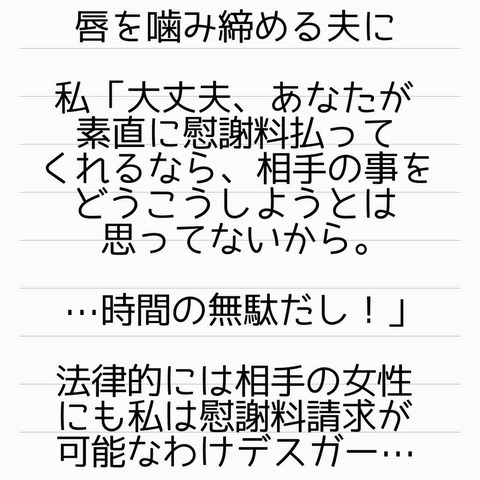 唇を噛み締める夫に
私「大丈夫、あなたが
素直に慰謝料払って
くれるなら、相手の事を
どうこうしようとは
思ってないから。
…時間の無駄だし！」
法律的には相手の女性
にも私は慰謝料請求が
可能なわけデスガー…